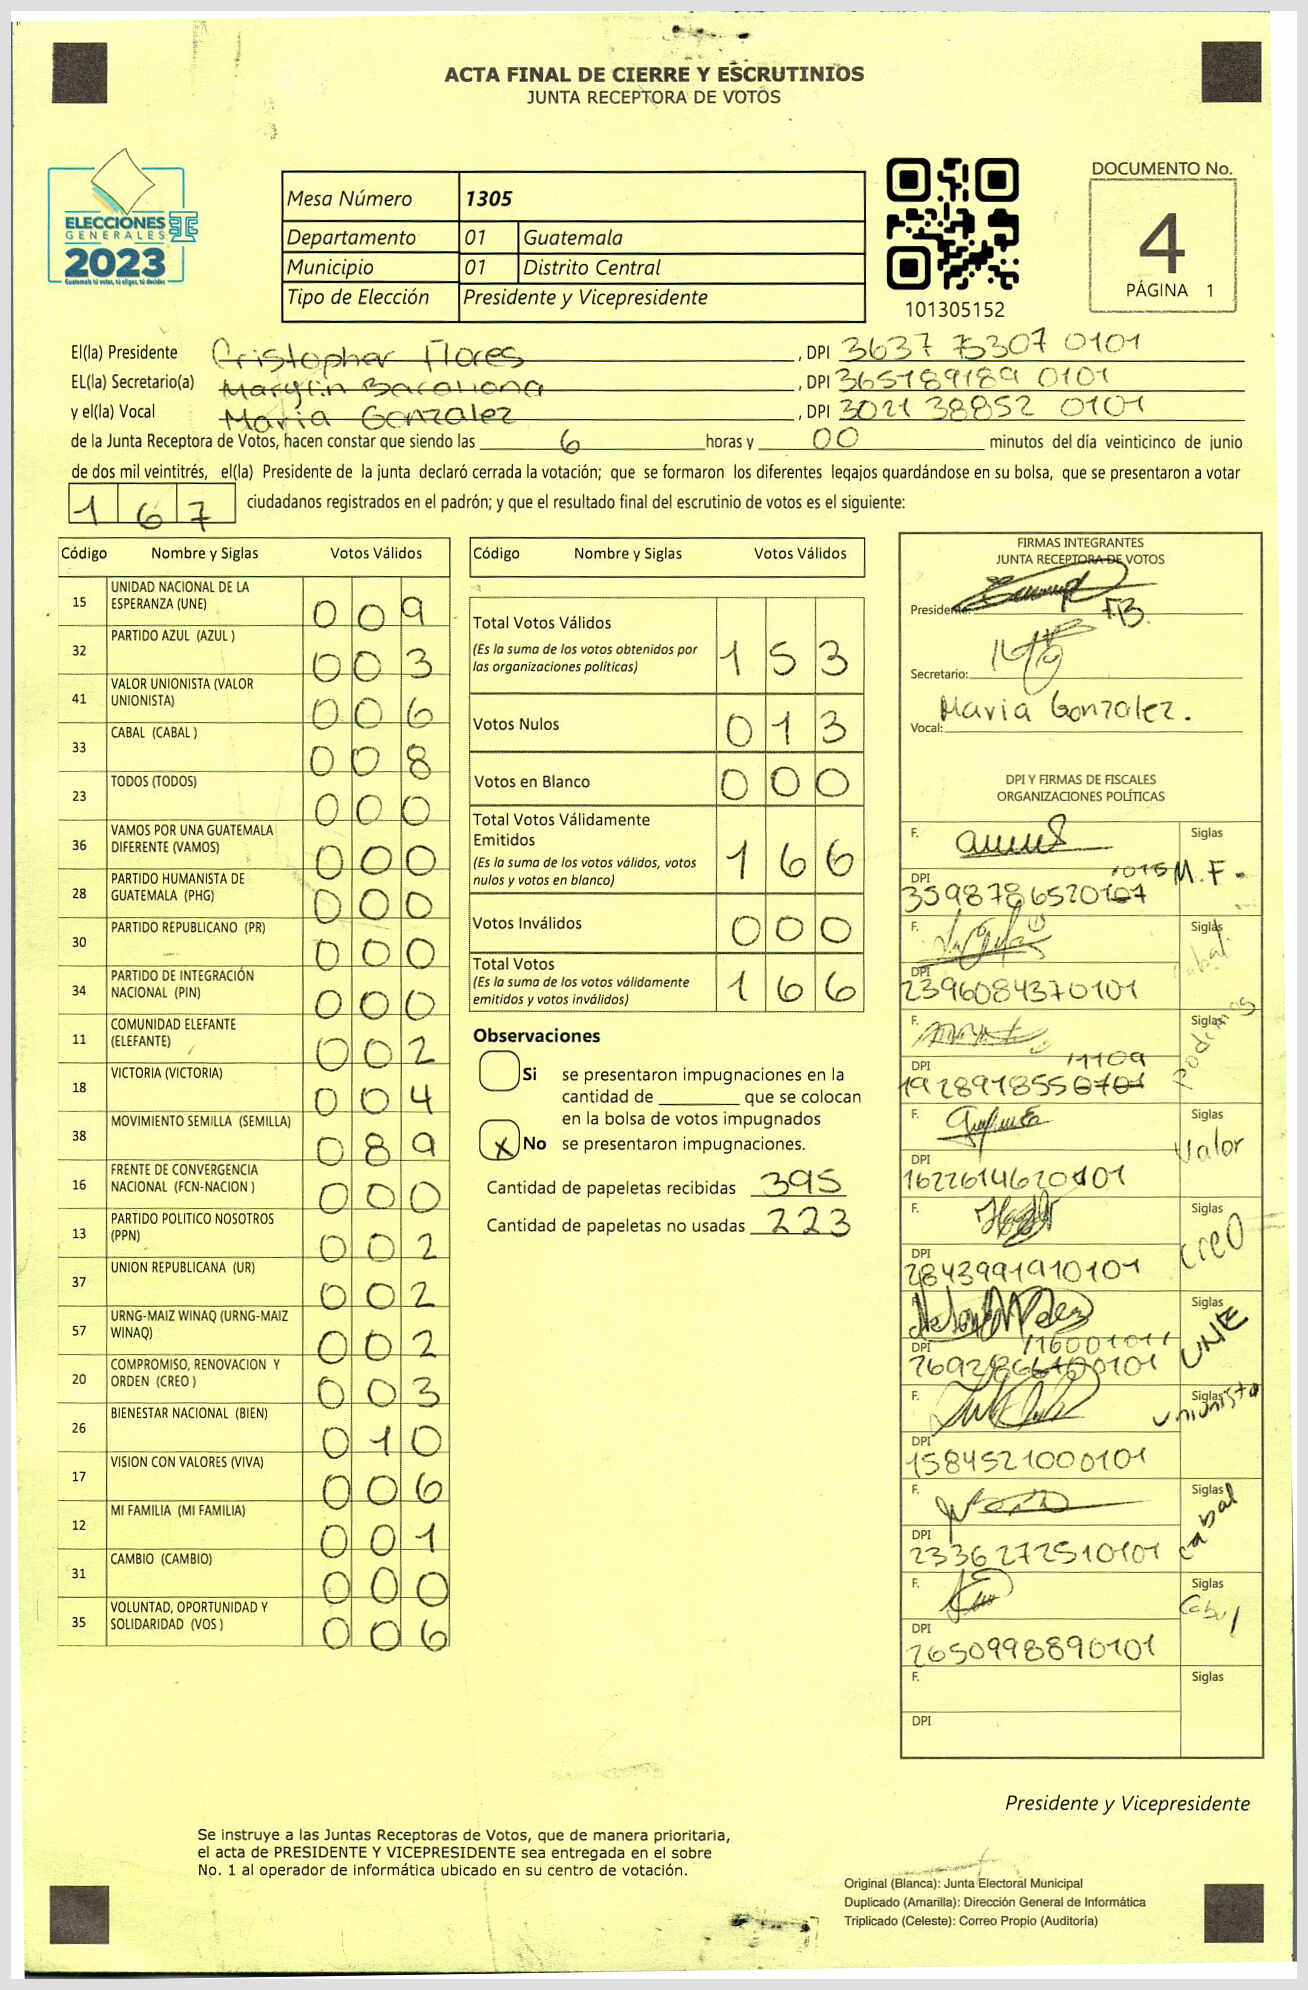 ACTA FINAL DE CIERRE Y ESCRUTINIOS
JUNTA RECEPTORA DE VOTOS
ELECCIONES
GENERALES
2023
Guatemala tú votas, tú eliges, tú decides
Mesa Número 1305
Departamento 01 Guatemala
Municipio 01 Distrito Central
Tipo de Elección Presidente y Vicepresidente
101305152
DOCUMENTO No.
4
PÁGINA 1
El(la) Presidente Cristopher Flores, DPI 3637 75307 0101
EL(la) Secretario(a) Marylin Barahona, DPI 365189189 0101
y el(la) Vocal Maria Gonzalez, DPI 3021 38852 0101
de la Junta Receptora de Votos, hacen constar que siendo las 6 horas y 00 minutos del día veinticinco de junio
de dos mil veintitrés, el(la) Presidente de la junta declaró cerrada la votación; que se formaron los diferentes legajos guardándose en su bolsa, que se presentaron a votar
167 ciudadanos registrados en el padrón; y que el resultado final del escrutinio de votos es el siguiente:
Código Nombre y Siglas Votos Válidos
15 UNIDAD NACIONAL DE LA ESPERANZA (UNE) 009
32 PARTIDO AZUL (AZUL ) 003
41 VALOR UNIONISTA (VALOR UNIONISTA) 006
33 CABAL (CABAL ) 008
23 TODOS (TODOS) 000
36 VAMOS POR UNA GUATEMALA DIFERENTE (VAMOS) 000
28 PARTIDO HUMANISTA DE GUATEMALA (PHG) 000
30 PARTIDO REPUBLICANO (PR) 000
34 PARTIDO DE INTEGRACIÓN NACIONAL (PIN) 000
11 COMUNIDAD ELEFANTE (ELEFANTE) 002
18 VICTORIA (VICTORIA) 004
38 MOVIMIENTO SEMILLA (SEMILLA) 089
16 FRENTE DE CONVERGENCIA NACIONAL (FCN-NACION ) 000
13 PARTIDO POLITICO NOSOTROS (PPN) 002
37 UNION REPUBLICANA (UR) 002
57 URNG-MAIZ WINAQ (URNG-MAIZ WINAQ) 002
20 COMPROMISO, RENOVACION Y ORDEN (CREO ) 003
26 BIENESTAR NACIONAL (BIEN) 010
17 VISION CON VALORES (VIVA) 006
12 MI FAMILIA (MI FAMILIA) 001
31 CAMBIO (CAMBIO) 000
35 VOLUNTAD, OPORTUNIDAD Y SOLIDARIDAD (VOS ) 006
Código Nombre y Siglas Votos Válidos
Total Votos Válidos 153
(Es la suma de los votos obtenidos por
las organizaciones políticas)
Votos Nulos 013
Votos en Blanco 000
Total Votos Válidamente
Emitidos 166
(Es la suma de los votos válidos, votos
nulos y votos en blanco)
Votos Inválidos 000
Total Votos 166
(Es la suma de los votos válidamente
emitidos y votos inválidos)
Observaciones
Si se presentaron impugnaciones en la
cantidad de ________ que se colocan
en la bolsa de votos impugnados
X No se presentaron impugnaciones.
Cantidad de papeletas recibidas 395
Cantidad de papeletas no usadas 223
FIRMAS INTEGRANTES
JUNTA RECEPTORA DE VOTOS
Presidente:
Secretario:
Vocal: Maria Gonzalez.
DPI Y FIRMAS DE FISCALES
ORGANIZACIONES POLÍTICAS
F. Siglas M.F.
DPI
F. Siglas Cabal
DPI 2396084370101
F. Siglas Podemos
DPI
F. Siglas Valor
DPI 1622614620101
F. Siglas CREO
DPI 2843991910101
F. Siglas UNE
DPI
F. Siglas Unionista
DPI 1584521000101
F. Siglas Cabal
DPI 2336272510101
F. Siglas Cabal
DPI 2650998890101
F. Siglas
DPI
Presidente y Vicepresidente
Se instruye a las Juntas Receptoras de Votos, que de manera prioritaria,
el acta de PRESIDENTE Y VICEPRESIDENTE sea entregada en el sobre
No. 1 al operador de informática ubicado en su centro de votación.
Original (Blanca): Junta Electoral Municipal
Duplicado (Amarilla): Dirección General de Informática
Triplicado (Celeste): Correo Propio (Auditoría)